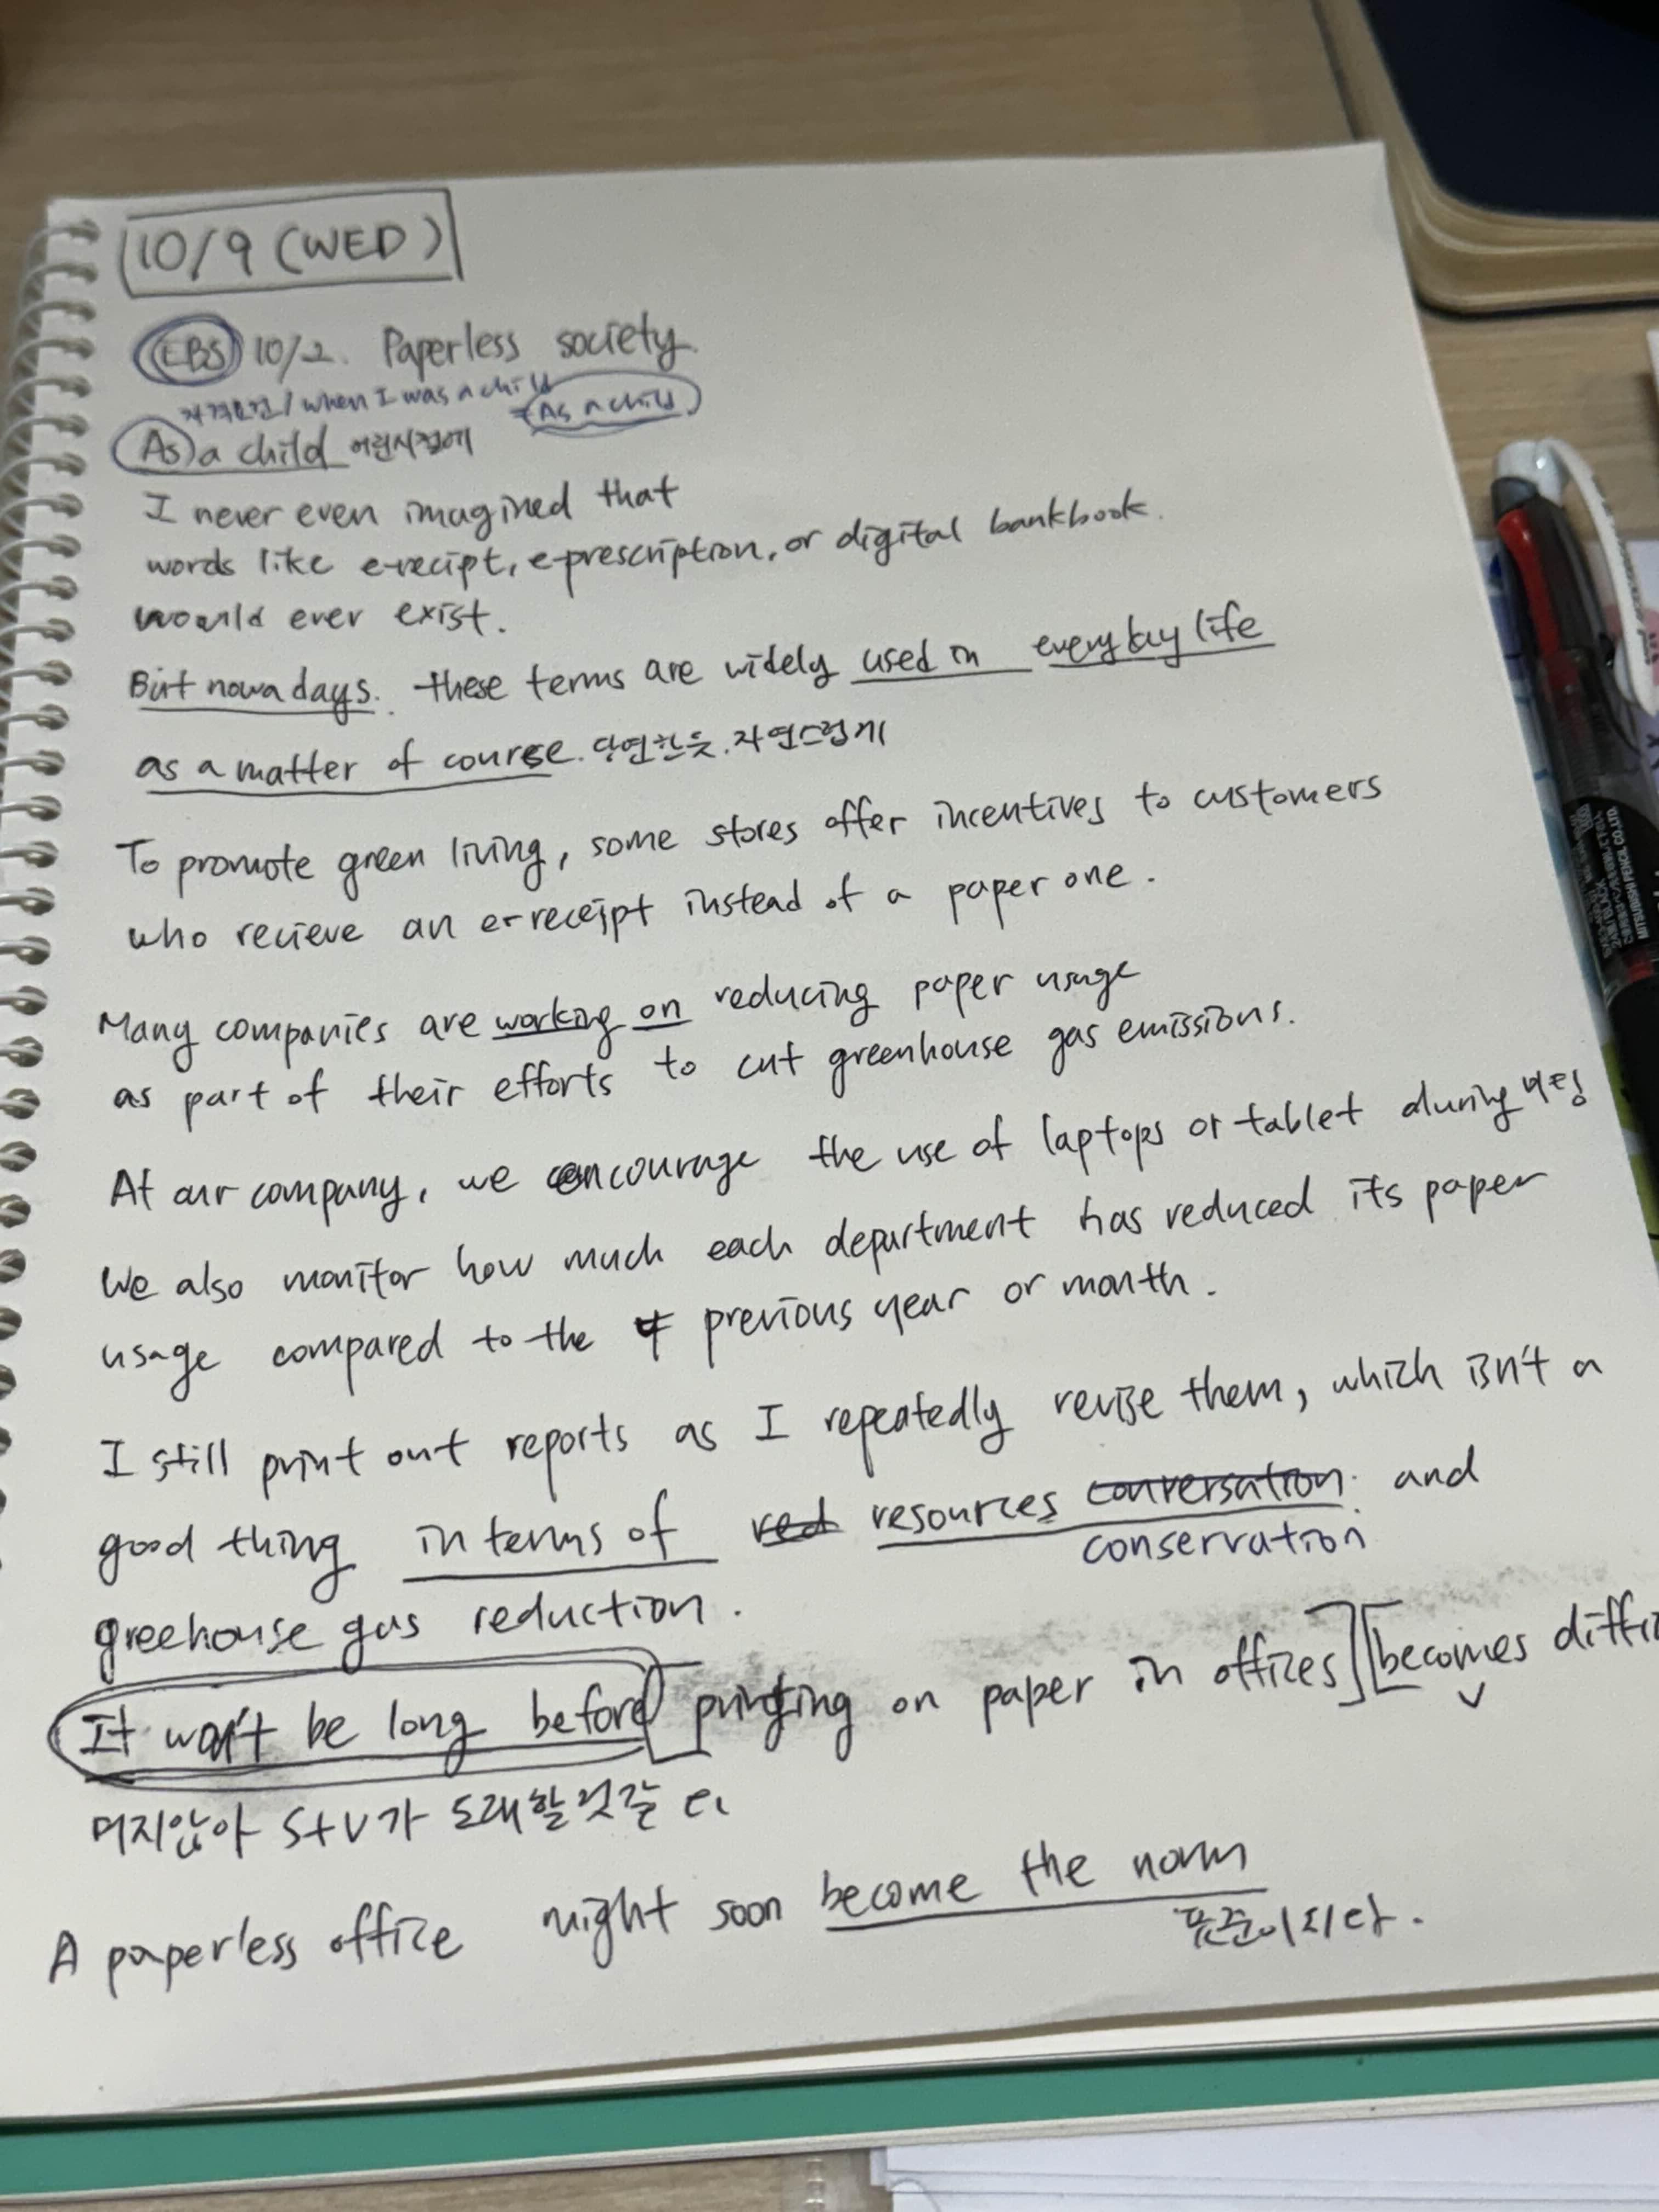 10/9 (WED)
EBS 10/2. Paperless society.
자격요건 / when I was a child
= As a child
As a child 어린시절에
I never even imagined that
words like e-recipt, e-prescription, or digital bankbook.
would ever exist.
But nowadays. these terms are widely used in everyday life
as a matter of course. 당연한듯. 자연스럽게
To promote green living, some stores offer incentives to customers
who recieve an e-receipt instead of a paper one.
Many companies are working on reducing paper usage
as part of their efforts to cut greenhouse gas emissions.
At our company, we encourage the use of laptops or tablet during
We also monitor how much each department has reduced its paper
usage compared to the previous year or month.
I still print out reports as I repeatedly revise them, which isn't a
good thing in terms of red resources conversation. and
conservation
greehouse gas reduction.
It won't be long before [printing on paper in offices] [becomes
v
머지않아 S+V가 도래할것같
A paperless office might soon become the norm
표준이되다.
MITSUBISHI PENCIL CO.,LTD.